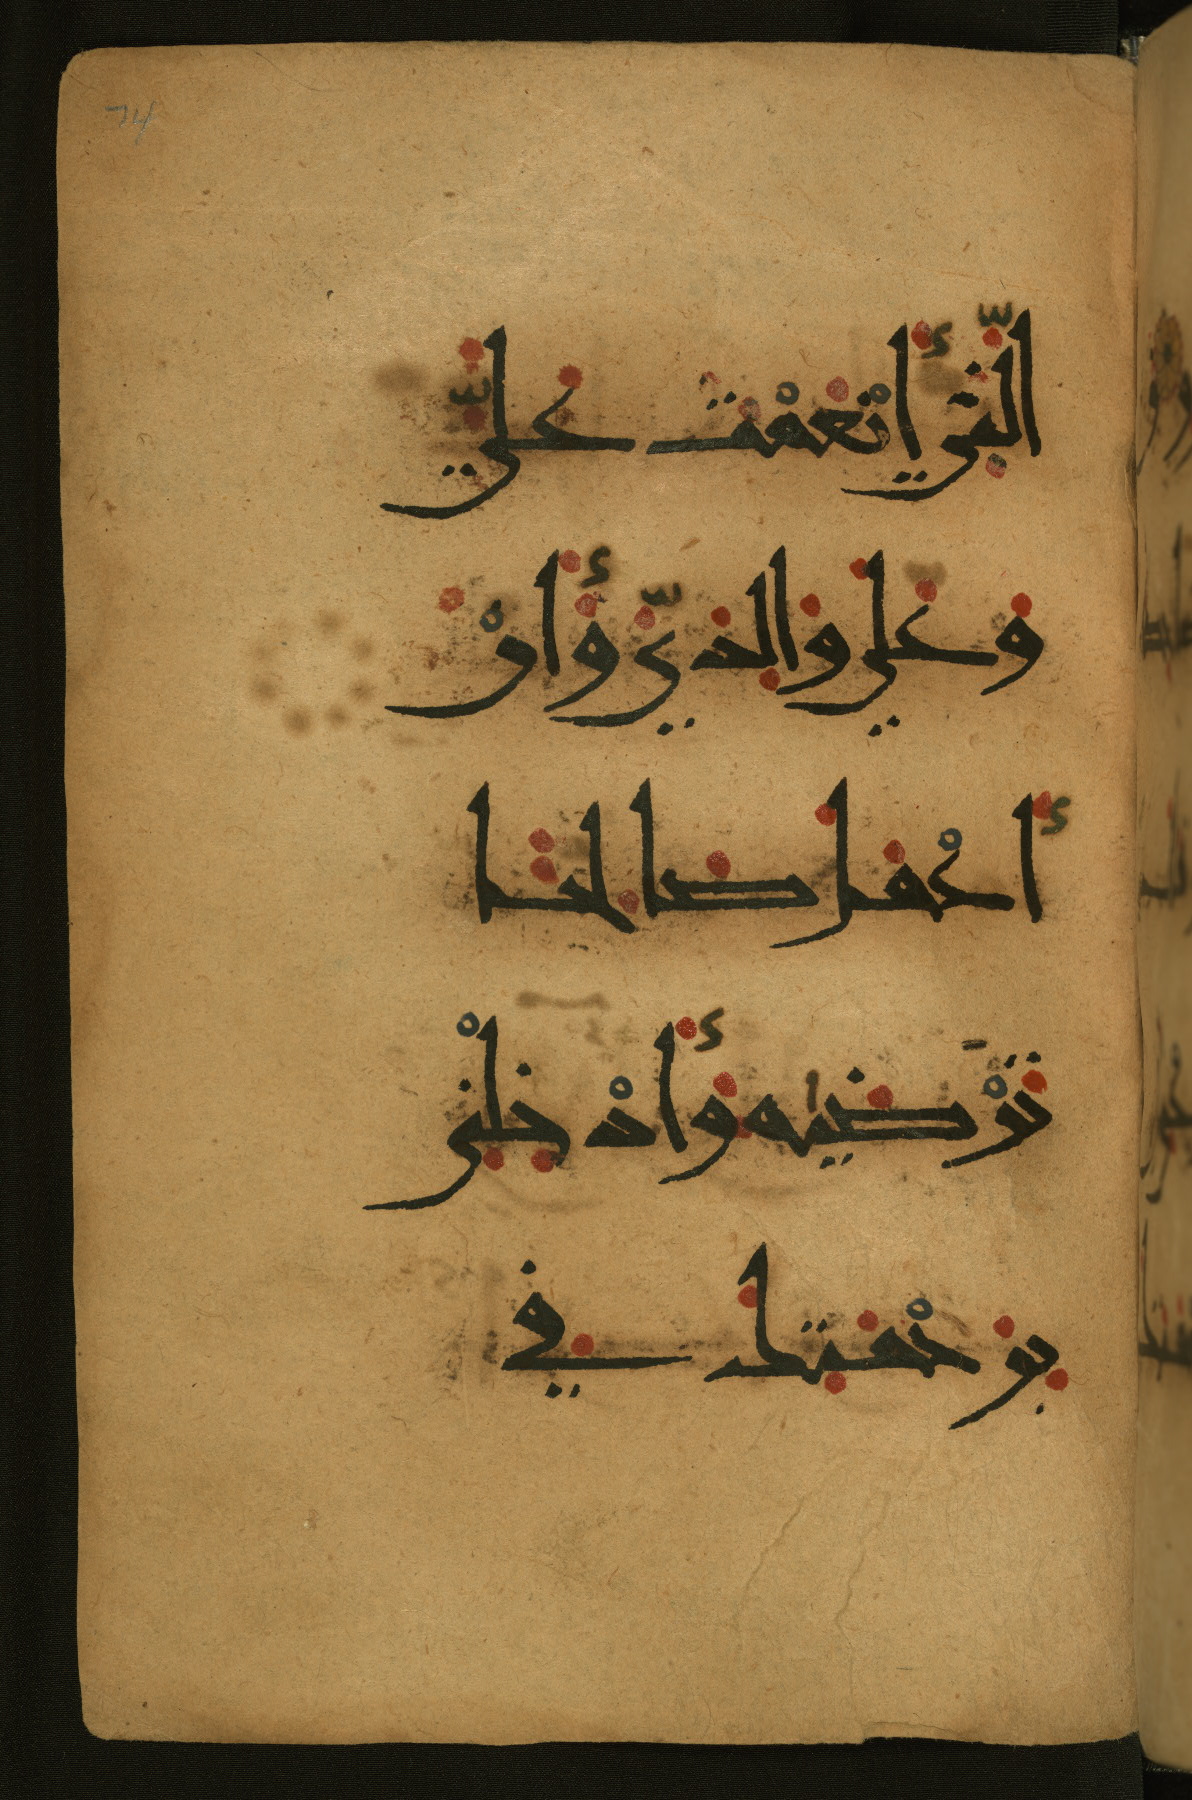 74
الَّتِي أَنْعَمْتَ عَلَيَّ
وَعَلَى وَالِدَيَّ وَأَنْ
أَعْمَلَ صَالِحًا
تَرْضٰيهُ وَأَدْخِلْنِي
بِرَحْمَتِكَ فِي